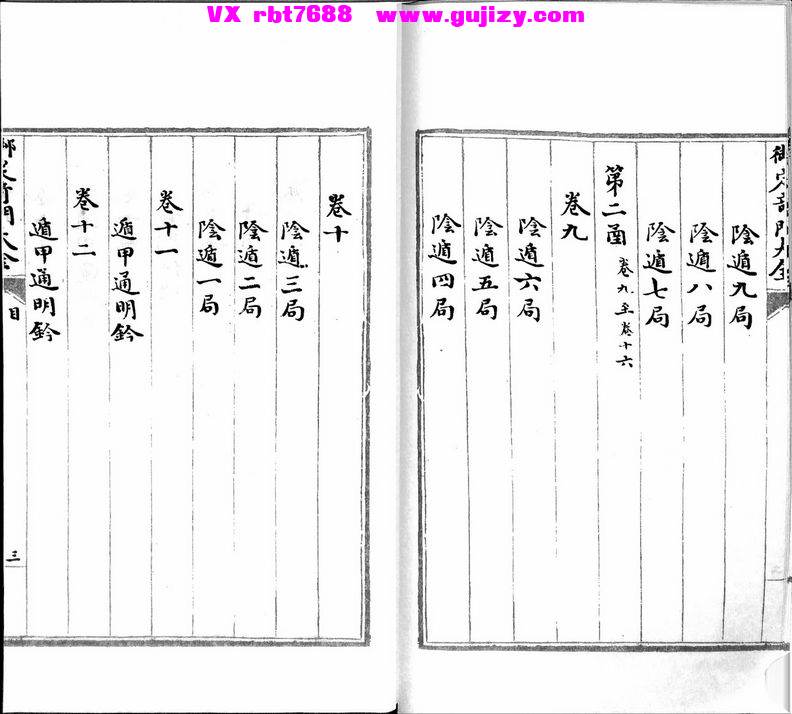 VX rbt7688 www.gujizy.com
御定奇門大全
陰遁九局
陰遁八局
陰遁七局
第二函 卷九至卷十六
卷九
陰遁六局
陰遁五局
陰遁四局
卷十
陰遁三局
陰遁二局
陰遁一局
卷十一
遁甲通明鈐
卷十二
遁甲通明鈐
御定奇門大全
目
三